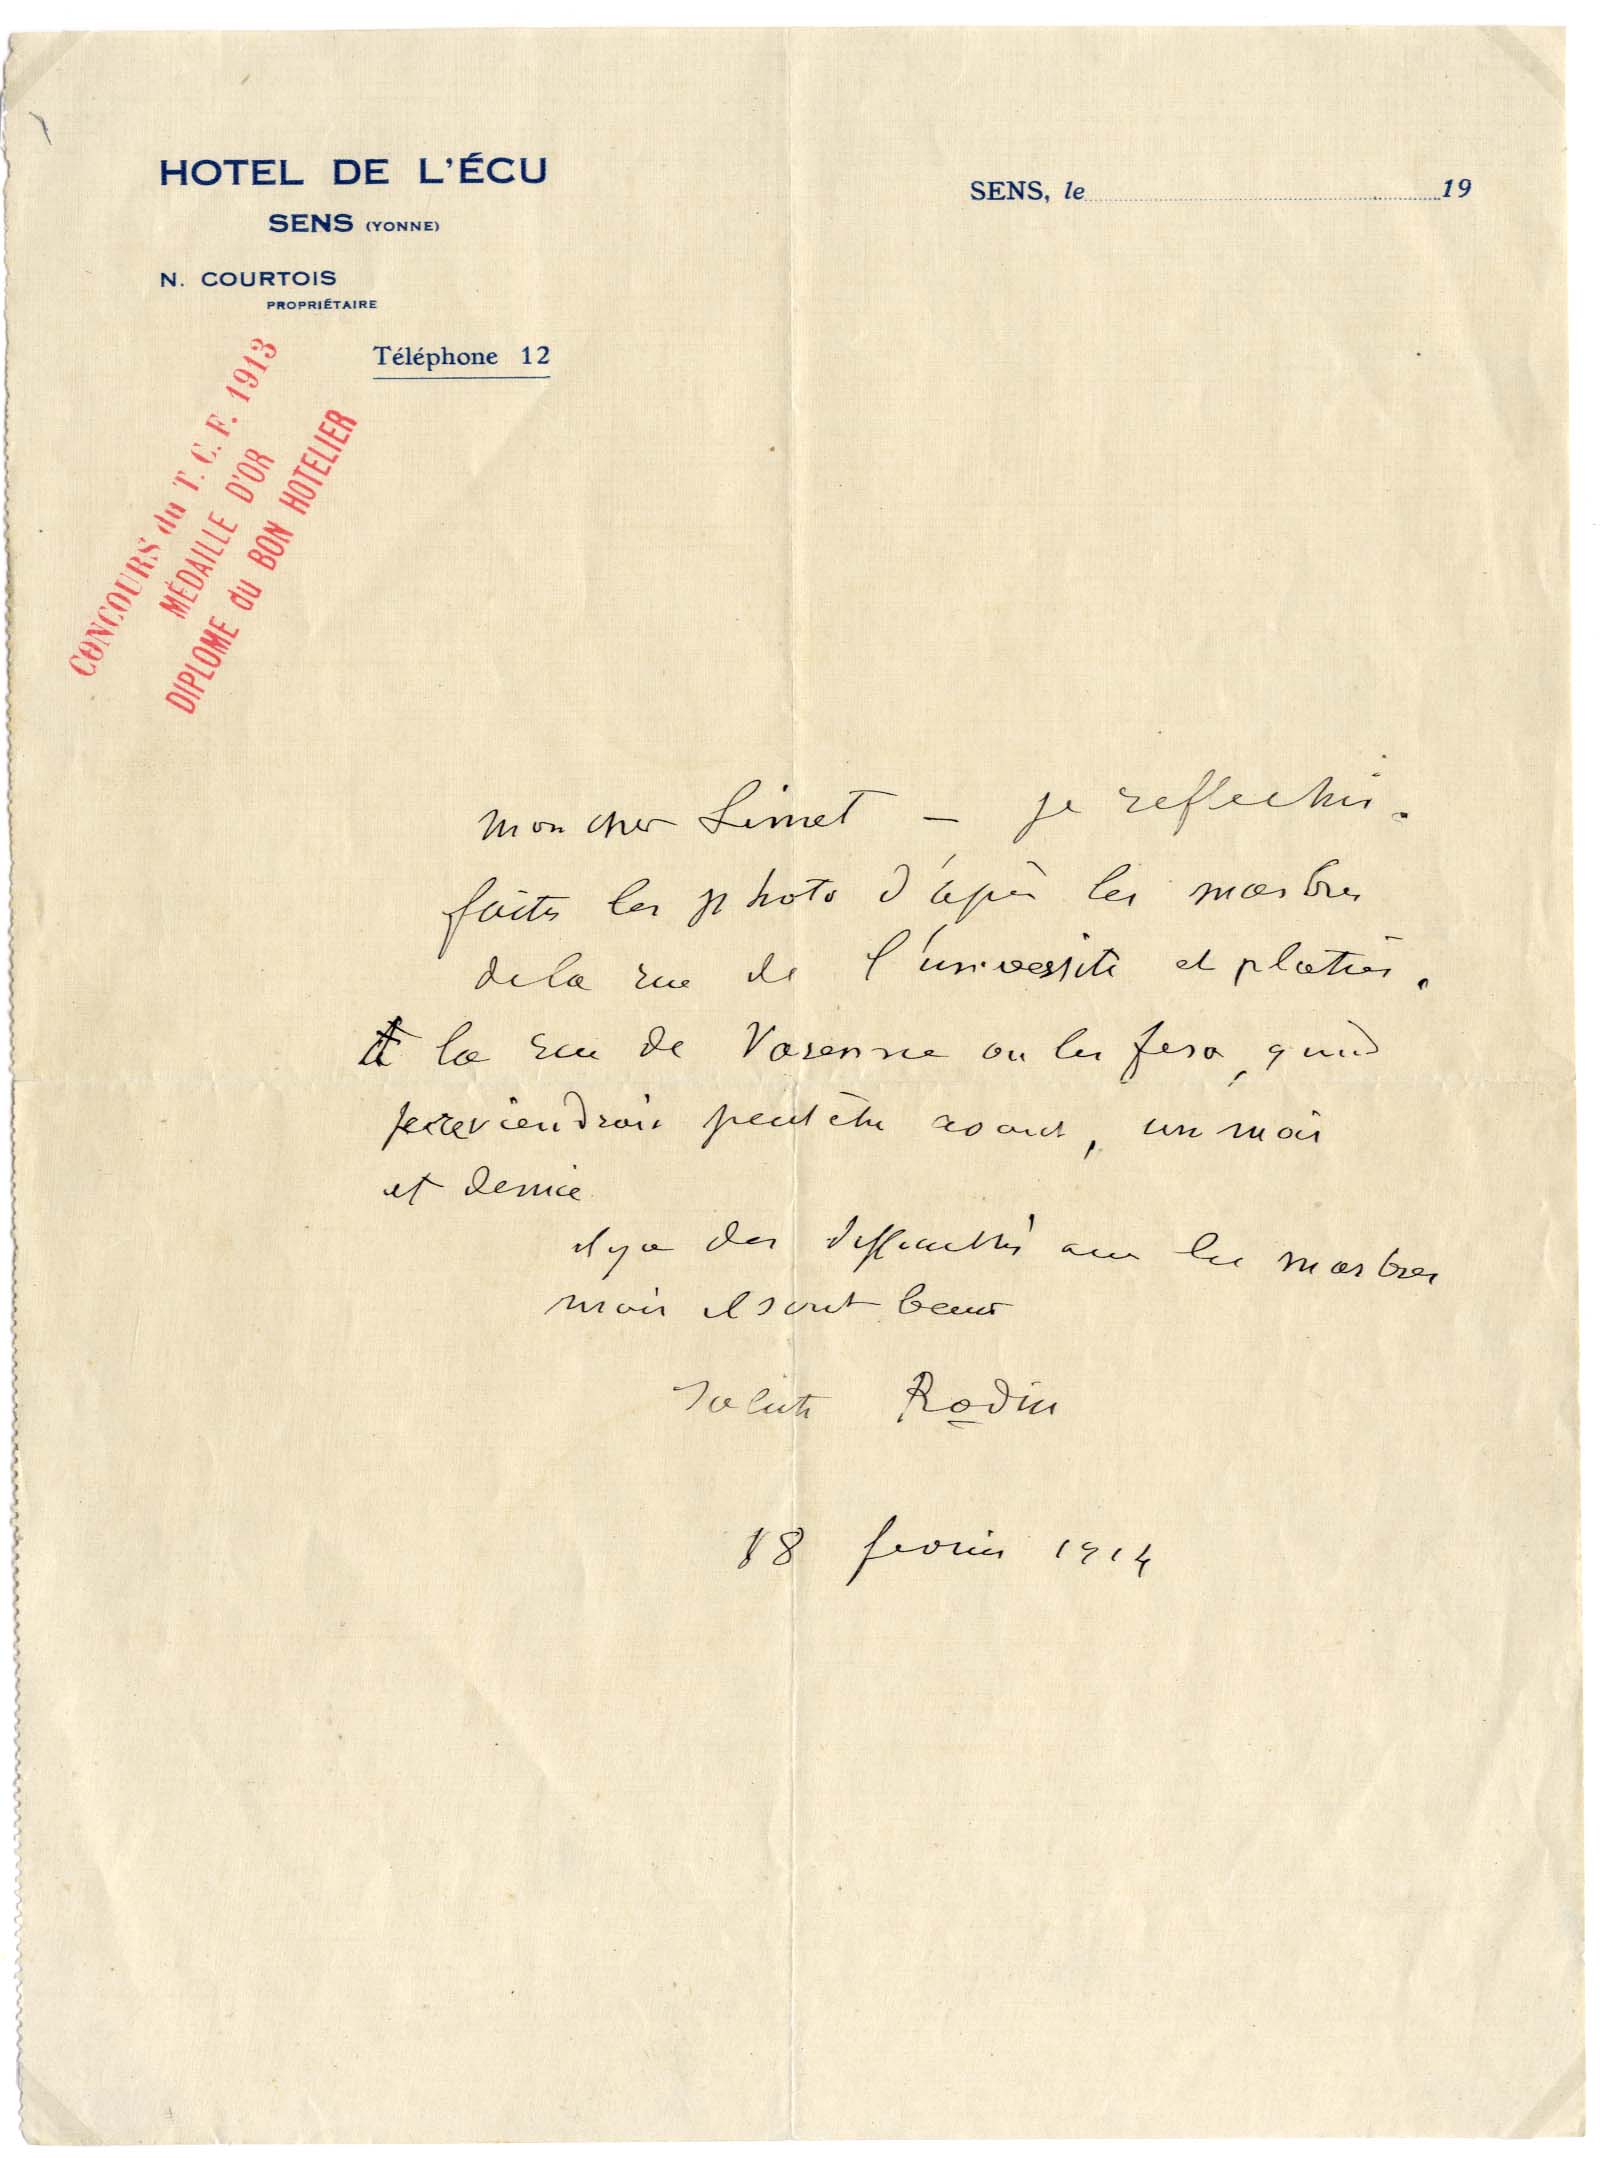 HOTEL DE L'ÉCU
SENS (YONNE)
N. COURTOIS
PROPRIÉTAIRE
Téléphone 12
SENS, le 19
CONCOURS du T. C. F. 1913
MÉDAILLE D'OR
DIPLOME du BON HOTELIER
mon cher Limet – je reflechis.
faites les photo d'après les marbres
dela rue de l'université et platres.
A la rue de Varenne on les fera, quand
je reviendrai peut être avant, un mois
et demie
il y a des difficultés avec les marbres
mais il sont beaux
Salut Rodin
18 fevrier 1914